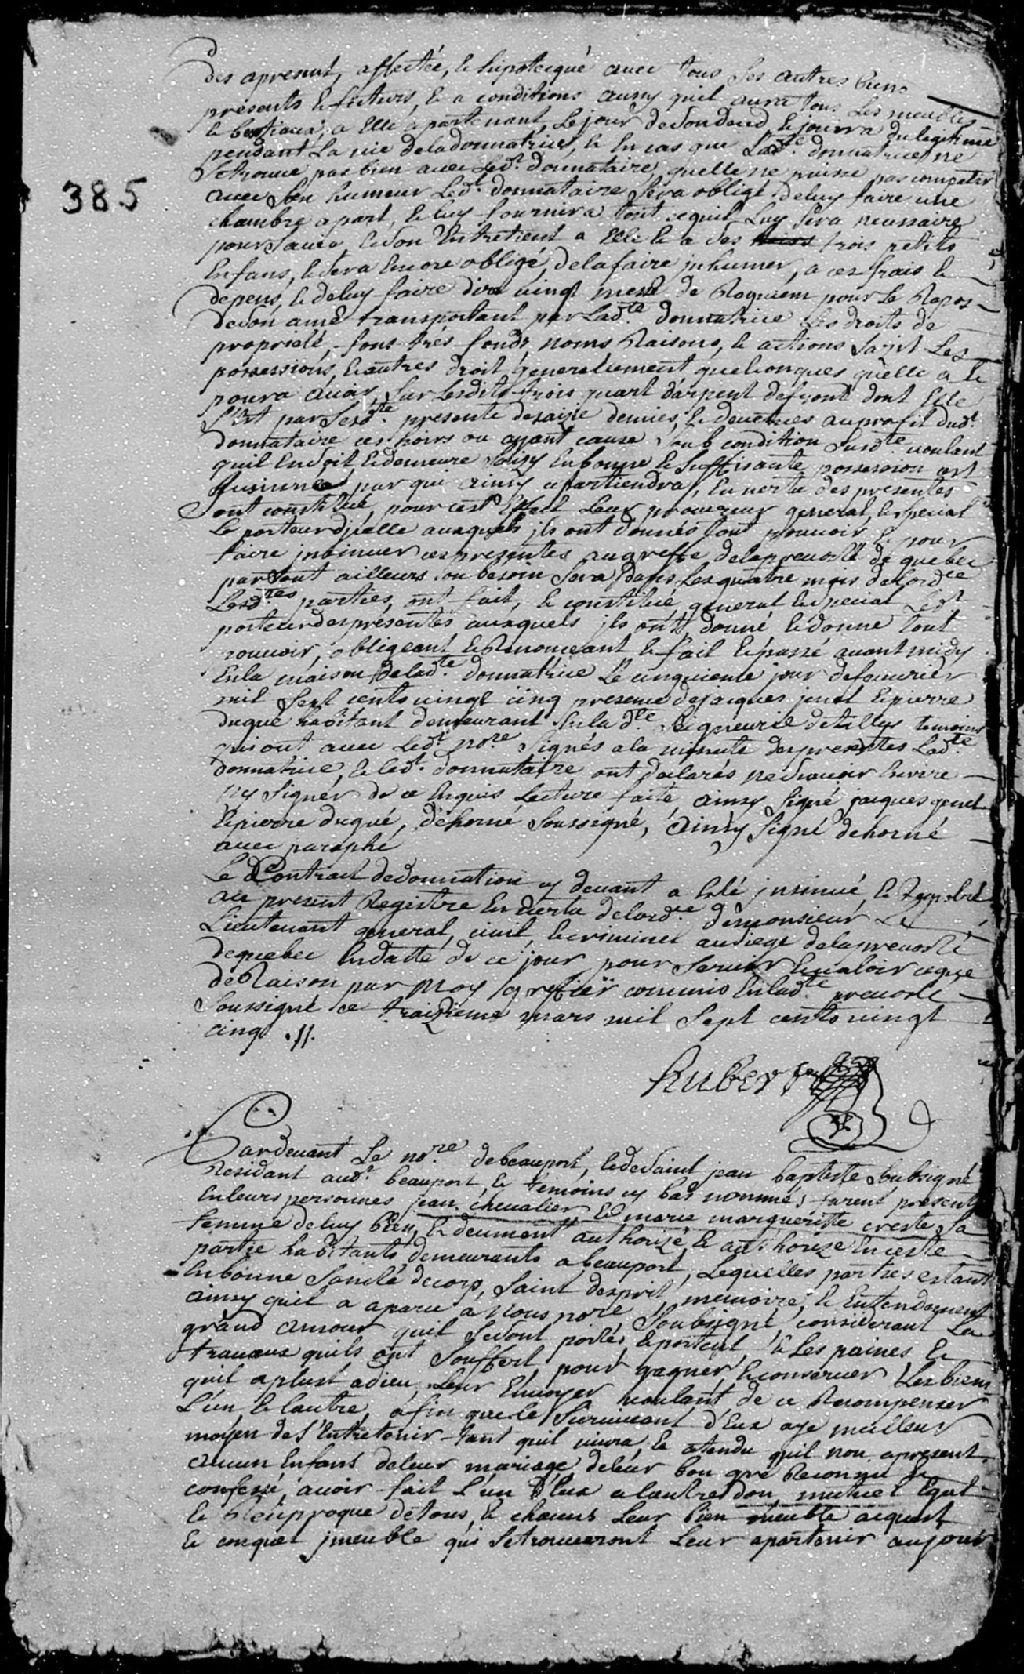 des apresent, affectée, & hipotequé avec tous ses autres biens
présents & futurs, & a conditions aussy quil aura tous les meubles
& bestiaux, a Elle apartenant, le jour de son deced & jouira du legitime
pendant la vie de la donnatrice, & En cas que Ladte. donnatrice ne
se trouve pas bien avec Ledt. donnataire, quelle ne puisse pas compatir
avec son humeur Ledt. donnataire sera obligé, de luy faire une
385
chambre a part, & luy fournira tout ce quil Luy sera necessaire
pour sa vie, & son Entretient a Elle & a ses trois petits
Enfans, & sera Encore obligé, de la faire inhumer, a ces frais &
depens, & de luy faire dire vingt messe de Requiem pour Le Repos
de son ame transportant par Ladte. donnatrice Les droits de
propriété, fons trés fonds, noms Raisons, & actions saisinnes
possessions, & autres droit generallement quelconques quelle a &
poura avoir, sur lesdits trois quart d'arpent de front dont Elle
s'est par ses dte. presente desaisie demies, & devetües au profit dudt.
donnataire ces hoirs ou ayant cause sous condition susdte. voulant
quil En soit & demeure saisy En bonne & suffisante possession et
saisinne par qui ainsy apartiendra, En vertu des presentes
sont constitué, pour cest Effect Leur procureur general, & special
Le porteur dicelle auxquels ils ont donnés tout pouvoir & pour
faire insinuer ces presentes au greffe de la prevosté de quebec
partout ailleurs ou besoin sera dans les quatre mois de Lordce
Lesdtes. parties, ont fait, & constitué general & special Ledt.
porteur des presentes auxquels ils ont donné & donne tout
pouvoir, obligeant & Renonceant & fait & passé avant midy
En la maison de Ladte. donnatrice Le cinquieme jour de fevrier
mil sept cents vingt cinq presence de jacques genet & pierre
dugué habitant demeurant En la dte. seigneurie temoins
qui ont avec Ledt. nore. signés a la minute des presentes Ladte.
donnatrice, & Ledt. donnataire ont declarés ne scavoir Ecrire
ny signer de ce Enquis Lecture faite, ainsy signé jacques genet
& pierre dugué, dehorné soussigné, ainsy signé dehorné
avec paraphe
Le Contract de donnation cy devant a Esté insinué, & Registré
au present Registre En vertu de lordce de monsieur Le
Lieutenant general, civil & criminel au siege de la prevosté
de quebec En datte de ce jour pour servir & valoir ce que
de Raison par Moy greffier commis En ladte. prevosté
soussigné ce traiziéme mars mil sept cents vingt
cinq .//.
Hubert
Pardevant Le nore. de beauport, & de saint jean baptiste soubsigné
Residant audt. beauport, & temoins cy bas nommés furent présents
En leurs personnes jean chevalier & marie margueritte cresté sa
femme de luy bien, & deument authorizé & authorize En ceste
partie habitants demeurants a beauport, Lequelles parties estant
En bonne Santé de corp, saint d'esprit, memoire, & Entendement
ainsy quil a aparu a Nous nore. Soubsigné considerant La
grand amour quil se sont porté, & portent, & Les paines &
travaux quils ont souffert pour gagner, & conserver Les biens
quil a plust a dieu Leur Envoyer voulant de ce Recompenser
L'un & lautre, afin que le survivant d'Eux aye meilleur
moyen de s'Entretenir tant quil vivra, & atendu quil non apresent
aucun Enfans de leur mariage de leur bon gré Reconnu &
confessé, avoir fait L'un d'Eux a lautre don mutuel Egal
& Réciproque de tous, & chacuns Leur bien meuble acquest
& conquet imeuble qui se trouveront Leur apartenir au jour